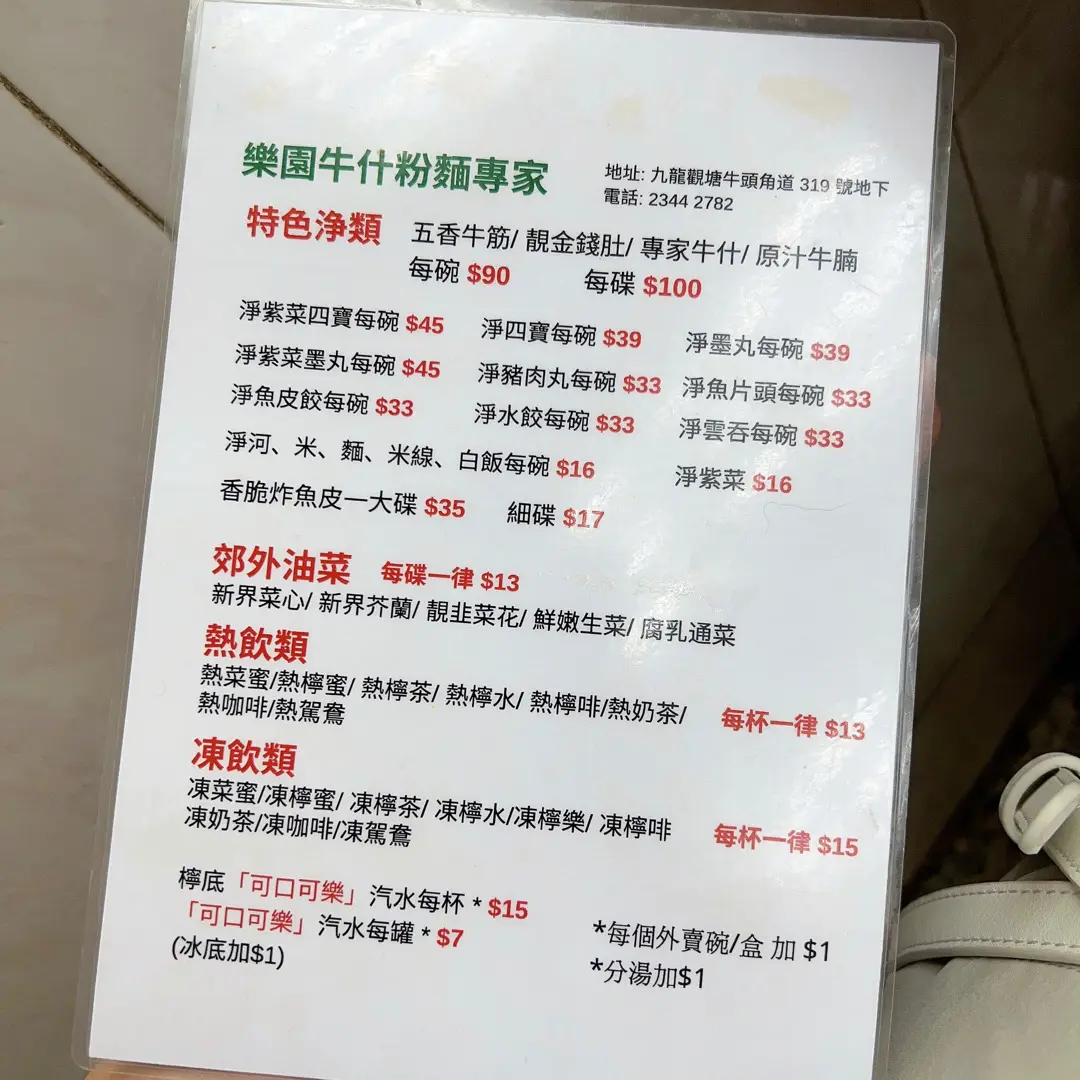 樂園牛什粉麵專家
地址: 九龍觀塘牛頭角道 319 號地下
電話: 2344 2782
特色浄類 五香牛筋/ 靚金錢肚/ 專家牛什/ 原汁牛腩
每碗 $90 每碟 $100
淨紫菜四寶每碗 $45 淨四寶每碗 $39 淨墨丸每碗 $39
淨紫菜墨丸每碗 $45 淨豬肉丸每碗 $33 淨魚片頭每碗 $33
淨魚皮餃每碗 $33 淨水餃每碗 $33 淨雲吞每碗 $33
淨河、米、麵、米線、白飯每碗 $16 淨紫菜 $16
香脆炸魚皮一大碟 $35 細碟 $17
郊外油菜 每碟一律 $13
新界菜心/ 新界芥蘭/ 靚韭菜花/ 鮮嫩生菜/ 腐乳通菜
熱飲類
熱菜蜜/熱檸蜜/ 熱檸茶/ 熱檸水/ 熱檸啡/熱奶茶/
熱咖啡/熱駕鴦 每杯一律 $13
凍飲類
凍菜蜜/凍檸蜜/ 凍檸茶/ 凍檸水/凍檸樂/ 凍檸啡
凍奶茶/凍咖啡/凍駕鴦 每杯一律 $15
檸底「可口可樂」汽水每杯 * $15
「可口可樂」汽水每罐 * $7
(冰底加$1)
*每個外賣碗/盒 加 $1
*分湯加$1